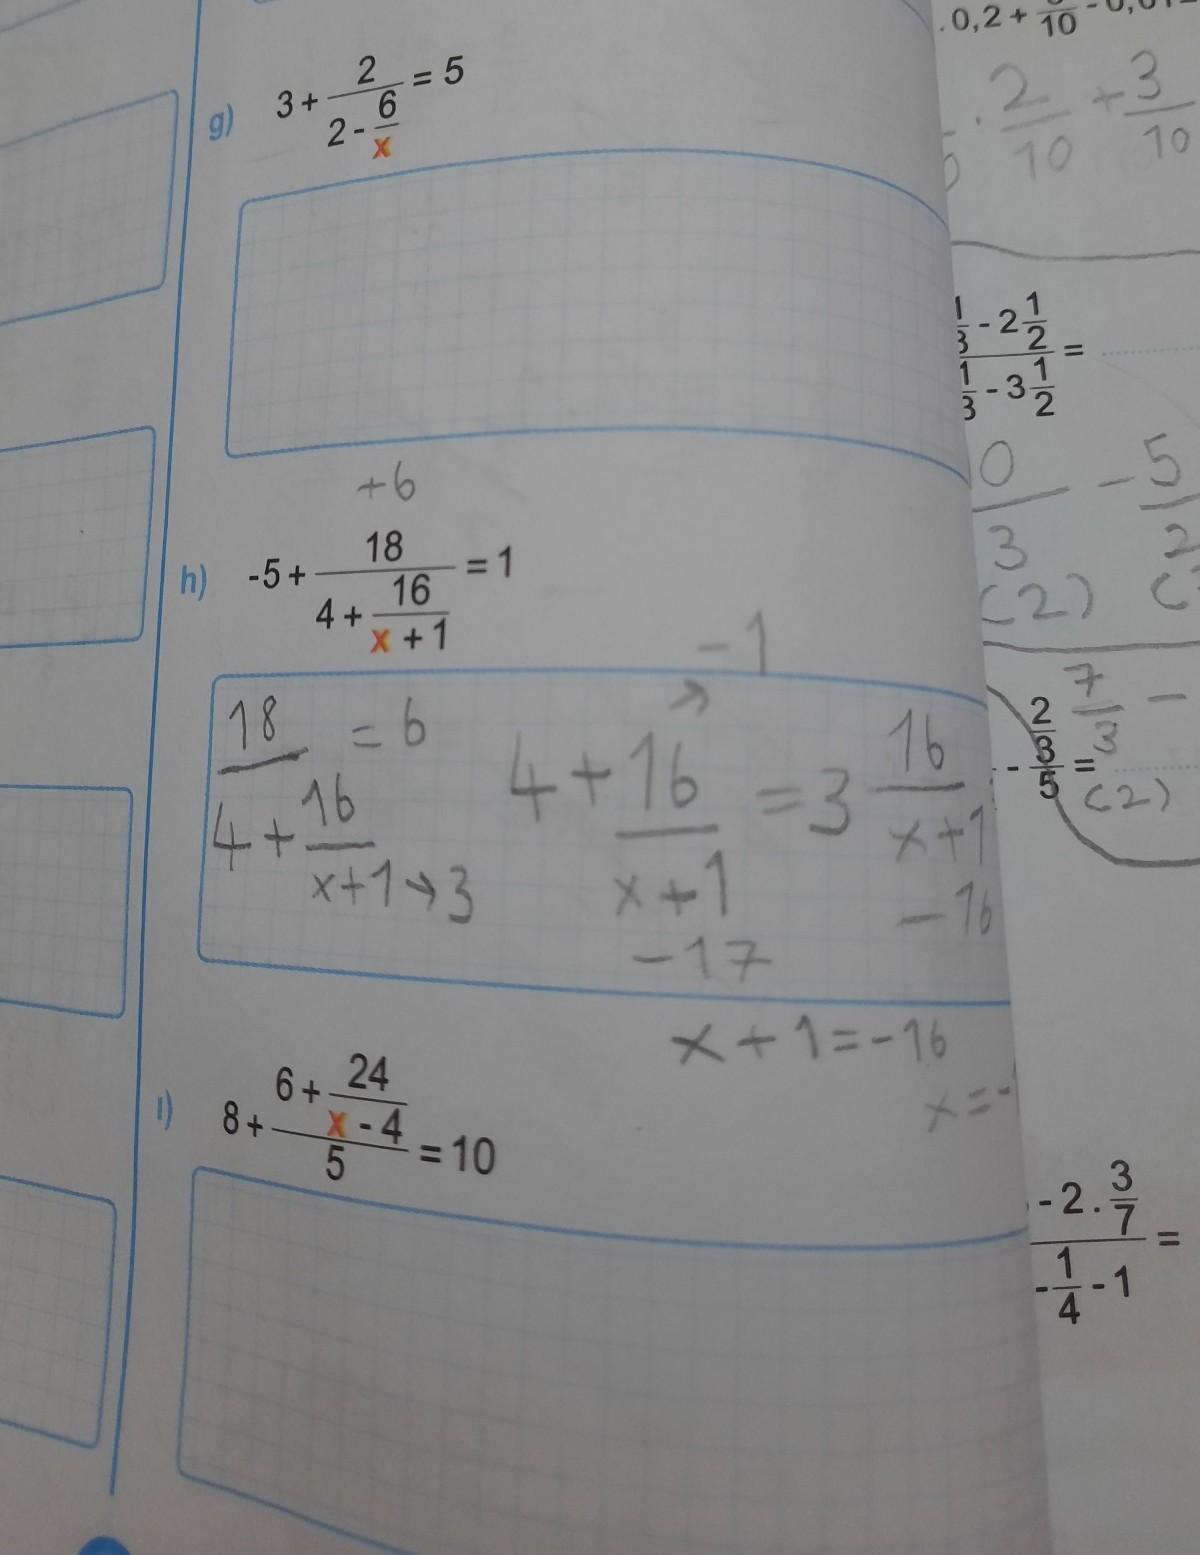 g) 3 + \frac{2}{2 - \frac{6}{x}} = 5
+6
h) -5 + \frac{18}{4 + \frac{16}{x + 1}} = 1
-1
\frac{18}{4 + \frac{16}{x+1}} = 6
→3
4 + \frac{16}{x+1} = 3
\frac{16}{x+1}
-16
-17
x + 1 = -16
x = -
ı) 8 + \frac{6 + \frac{24}{x - 4}}{5} = 10
. 0,2 + \frac{}{10} - 0,01
. \frac{2}{10} + \frac{3}{10}
\frac{\frac{1}{3} - 2\frac{1}{2}}{\frac{1}{3} - 3\frac{1}{2}} =
\frac{0}{3} - \frac{5}{2}
(2)
\frac{7}{3} -
(2)
- \frac{\frac{2}{3}}{5} =
\frac{- 2 . \frac{3}{7}}{-\frac{1}{4} - 1} =